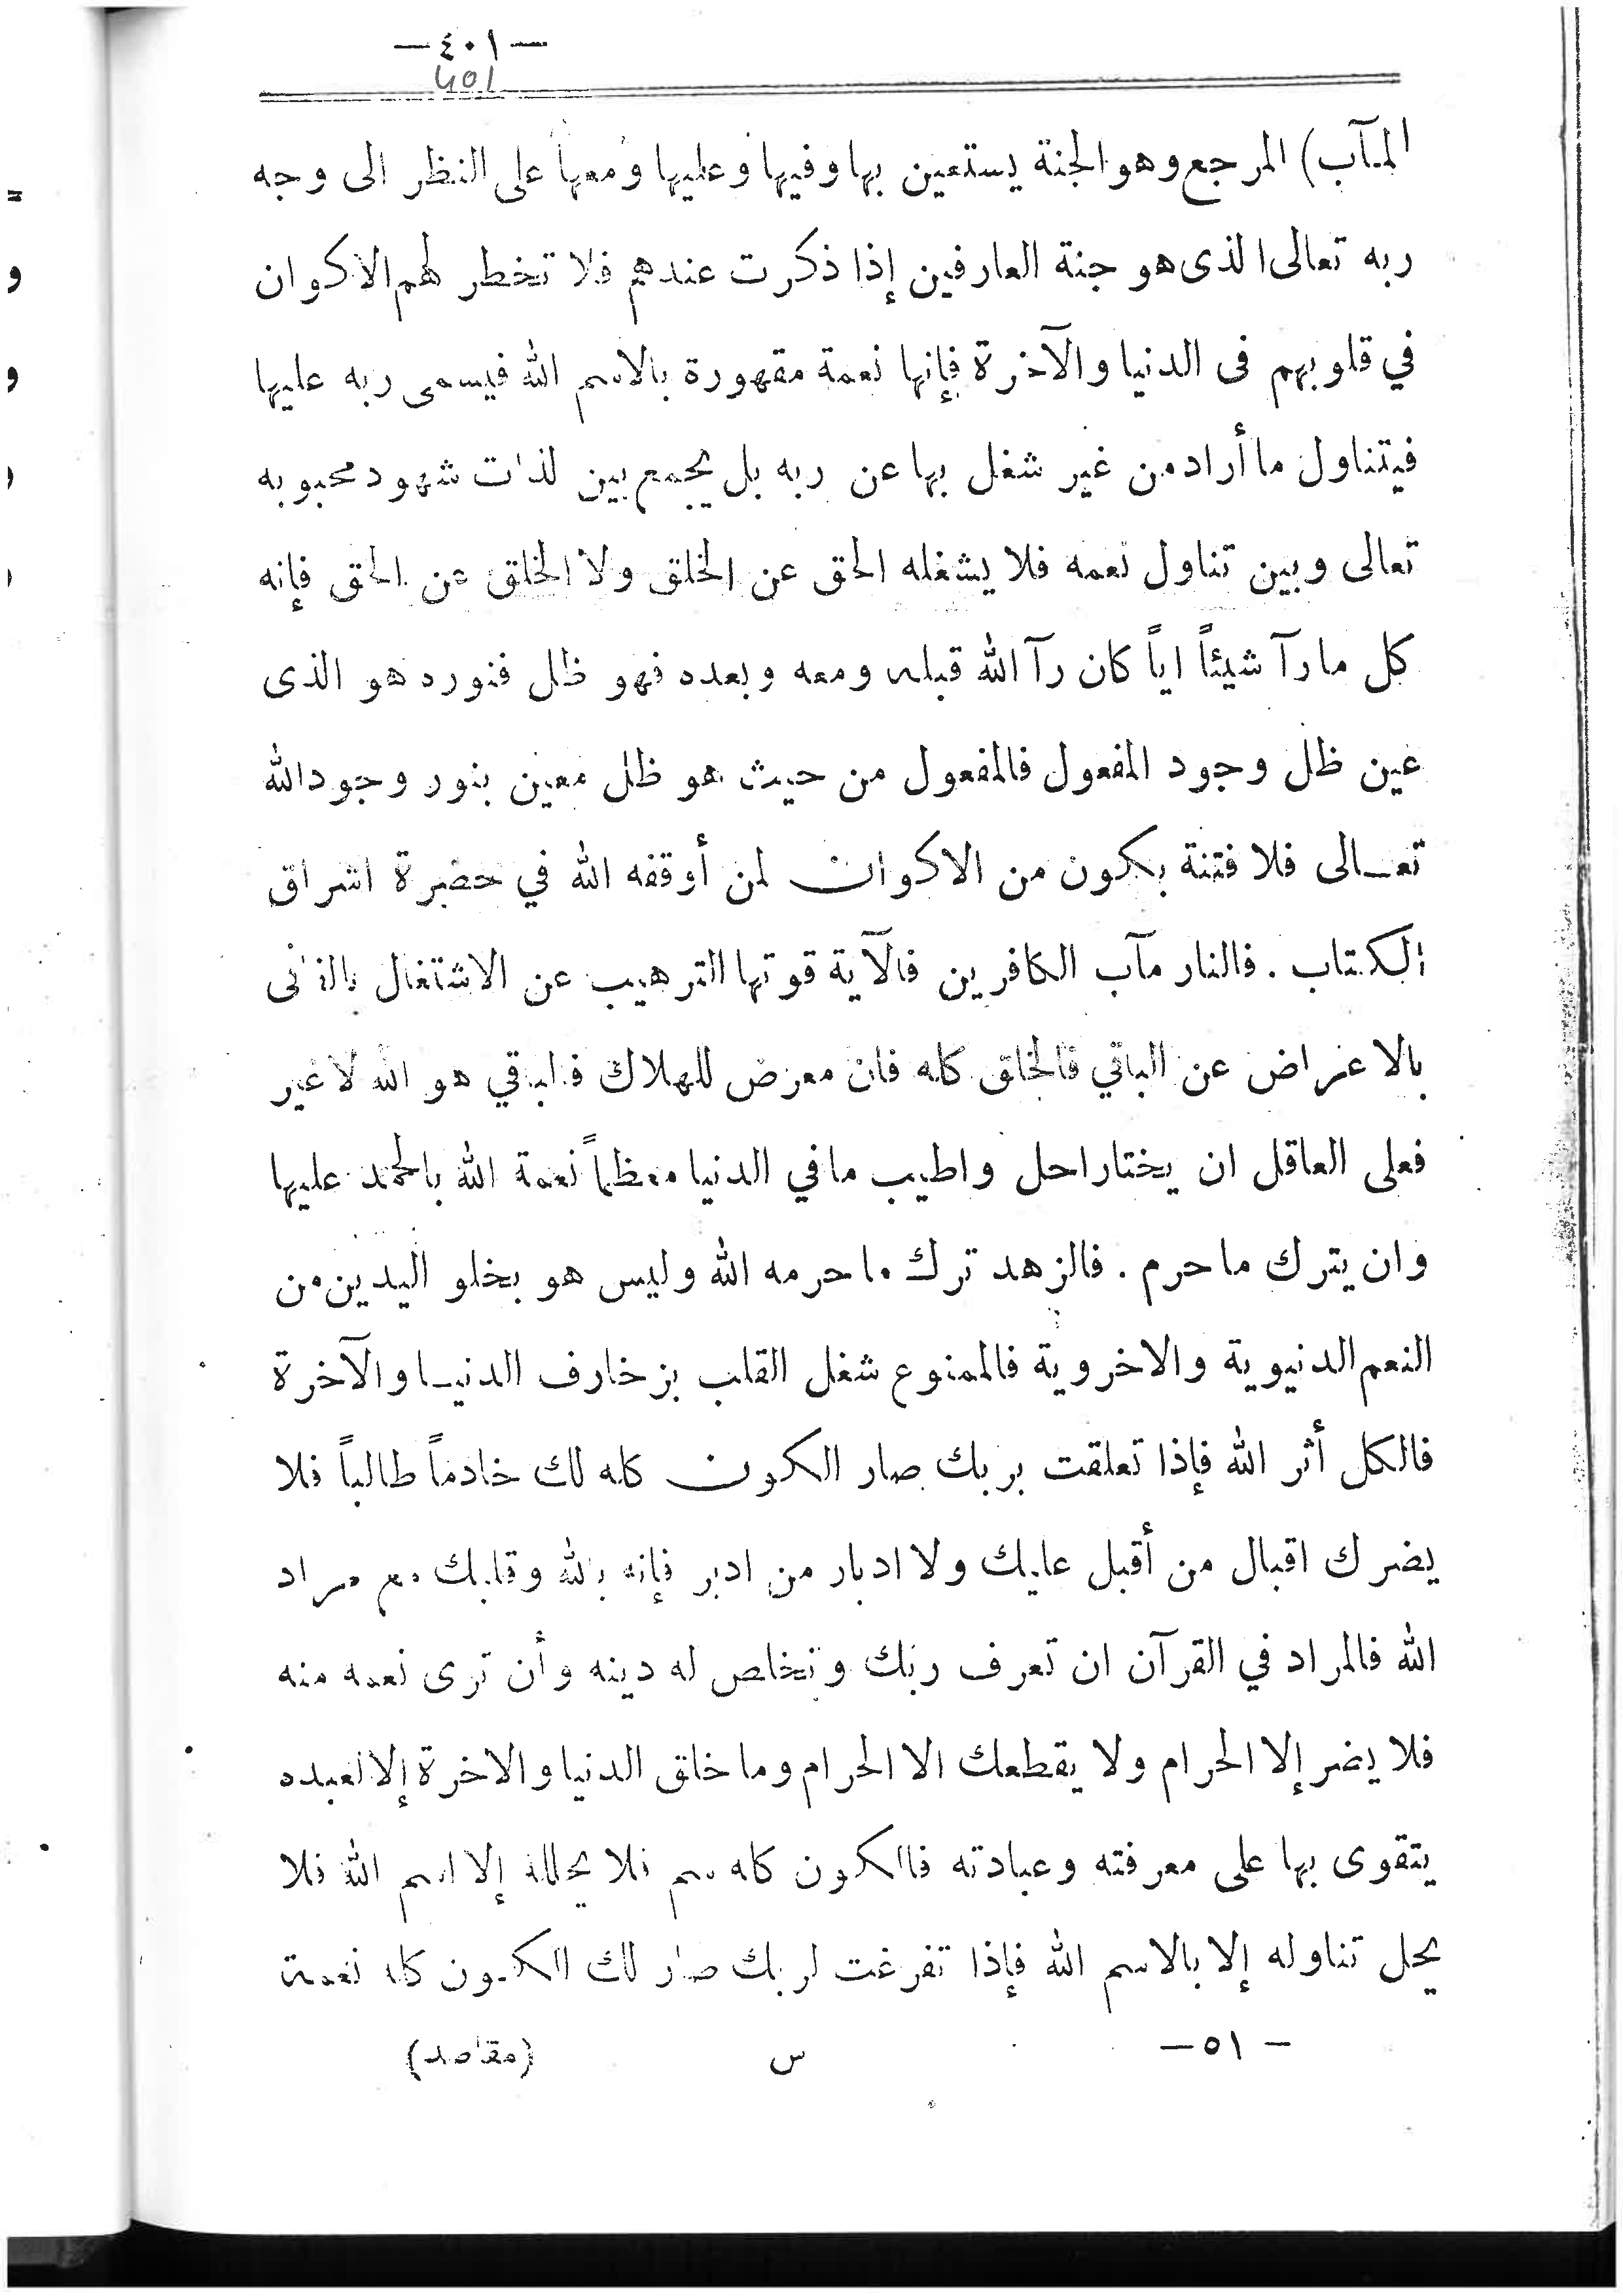 — ٤٠١ —
401
المآب) المرجع وهو الجنة يستعين بها وفيها وعليها ومعها على النظر الى وجه
ربه تعالى الذى هو جنة العارفين إذا ذكرت عندهم فلا تخطر لهم الاكوان
في قلوبهم فى الدنيا والآخرة فإنها نعمة مقهورة بالاسم الله فيسمى ربه عليها
فيتناول ما أراد من غير شغل بها عن ربه بل يجمع بين لذات شهود محبوبه
تعالى وبين تناول نعمه فلا يشغله الحق عن الخلق ولا الخلق عن الحق فإنه
كل ما رآ شيئاً اياً كان رآ الله قبله ومعه وبعده فهو ظل فنوره هو الذى
عين ظل وجود المفعول فالمفعول من حيث هو ظل معين بنور وجود الله
تعالى فلا فتنة بكون من الاكوان لمن أوقفه الله في حضرة اشراق
الكتاب . فالنار مآب الكافرين فالآية قوتها الترهيب عن الاشتغال بالفانى
بالاعراض عن الباقي فالخلق كله فان معرض للهلاك فالباقي هو الله لا غير
فعلى العاقل ان يختار احل واطيب ما في الدنيا معظماً نعمة الله بالحمد عليها
وان يترك ما حرم . فالزهد ترك ما حرمه الله وليس هو بخلو اليدين من
النعم الدنيوية والاخروية فالممنوع شغل القلب بزخارف الدنيا والآخرة
فالكل أثر الله فإذا تعلقت بربك صار الكون كله لك خادماً طالباً فلا
يضرك اقبال من أقبل عليك ولا ادبار من ادبر فإنه بالله وقلبك مع مراد
الله فالمراد في القرآن ان تعرف ربك وتخلص له دينه وأن ترى نعمه منه
فلا يضر إلا الحرام ولا يقطعك الا الحرام وما خلق الدنيا والاخرة إلا لعبده
يتقوى بها على معرفته وعبادته فالكون كله سم فلا يحلله إلا اسم الله فلا
يحل تناوله إلا بالاسم الله فإذا تفرغت لربك صار لك الكون كله نعمة
— ٥١ — س (مقاصد)